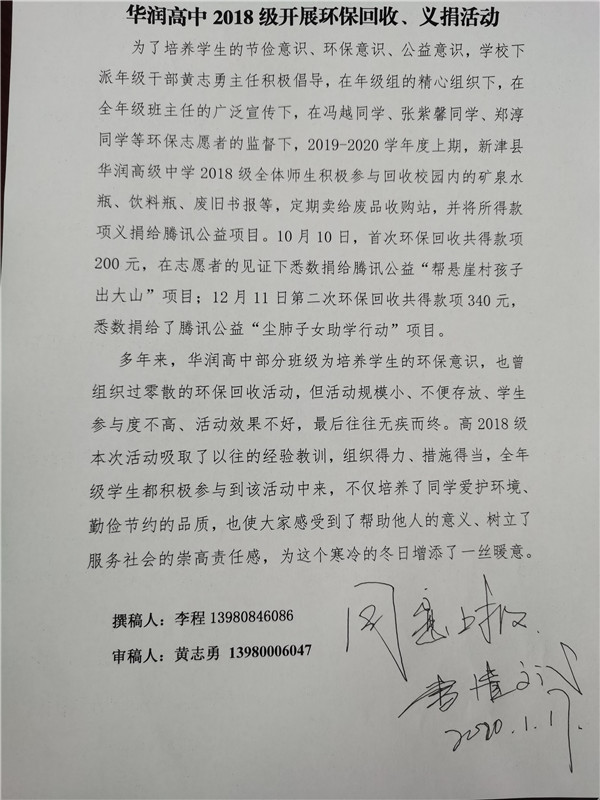 华润高中 2018 级开展环保回收、义捐活动
为了培养学生的节俭意识、环保意识、公益意识，学校下
派年级干部黄志勇主任积极倡导，在年级组的精心组织下，在
全年级班主任的广泛宣传下，在冯越同学、张紫馨同学、郑淳
同学等环保志愿者的监督下，2019-2020 学年度上期，新津县
华润高级中学 2018 级全体师生积极参与回收校园内的矿泉水
瓶、饮料瓶、废旧书报等，定期卖给废品收购站，并将所得款
项义捐给腾讯公益项目。10 月 10 日，首次环保回收共得款项
200 元，在志愿者的见证下悉数捐给腾讯公益“帮悬崖村孩子
出大山”项目；12 月 11 日第二次环保回收共得款项 340 元，
悉数捐给了腾讯公益“尘肺子女助学行动”项目。
多年来，华润高中部分班级为培养学生的环保意识，也曾
组织过零散的环保回收活动，但活动规模小、不便存放、学生
参与度不高、活动效果不好，最后往往无疾而终。高 2018 级
本次活动吸取了以往的经验教训，组织得力、措施得当，全年
级学生都积极参与到该活动中来，不仅培养了同学爱护环境、
勤俭节约的品质，也使大家感受到了帮助他人的意义、树立了
服务社会的崇高责任感，为这个寒冷的冬日增添了一丝暖意。
撰稿人：李程 13980846086
审稿人：黄志勇 13980006047
同意上报.
2020.1.17.